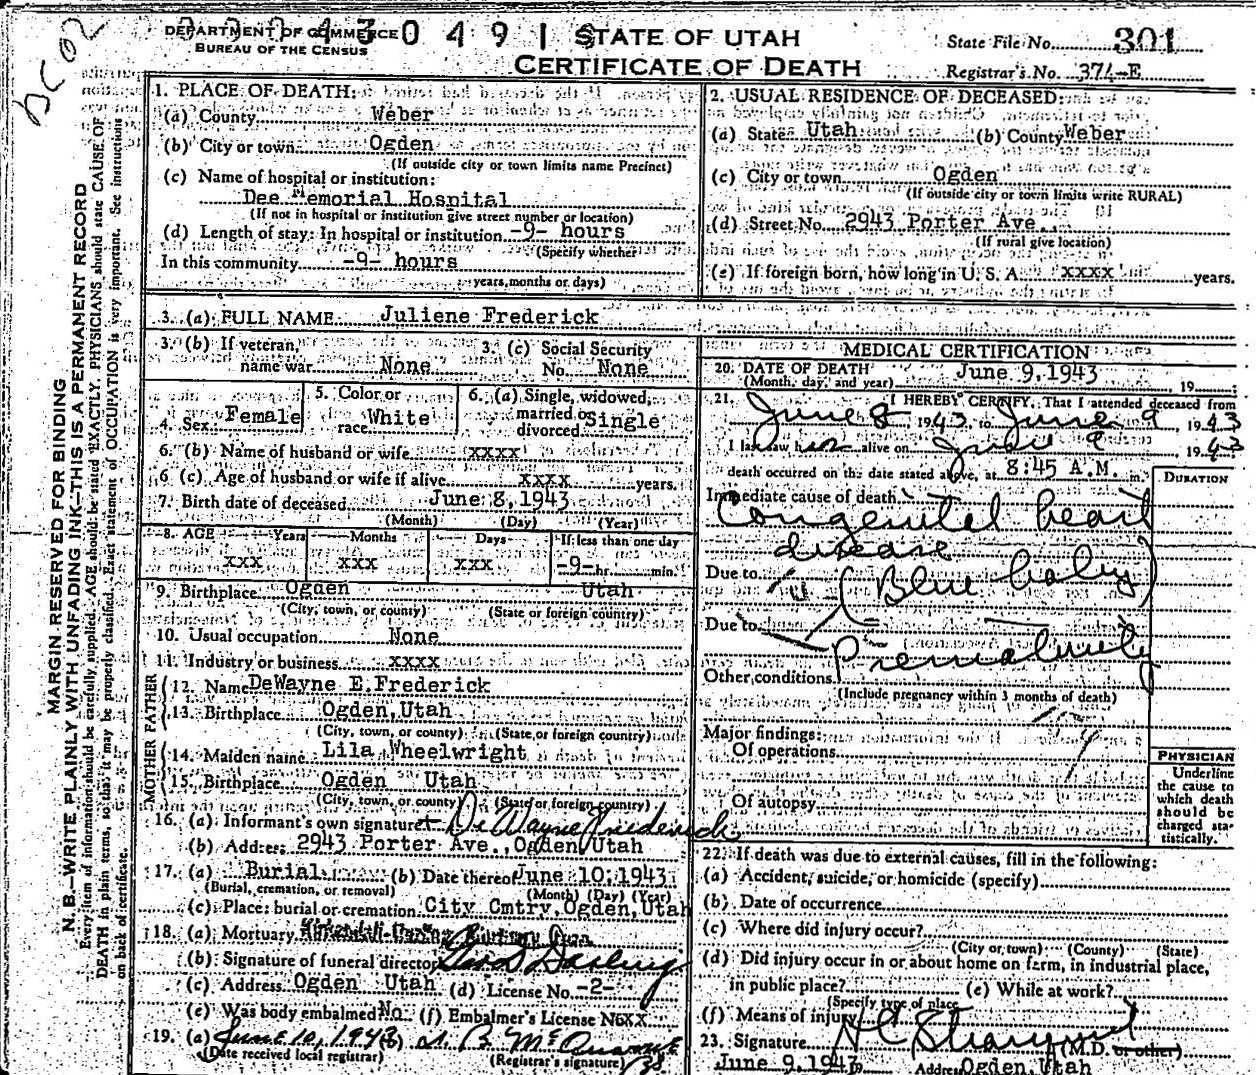 DEPARTMENT OF COMMERCE
BUREAU OF THE CENSUS
43049
STATE OF UTAH
CERTIFICATE OF DEATH
State File No. 301
Registrar's No. 374-E
MARGIN RESERVED FOR BINDING
N. B.—WRITE PLAINLY WITH UNFADING INK—THIS IS A PERMANENT RECORD
Every item of information should be carefully supplied. AGE should be stated EXACTLY. PHYSICIANS should state CAUSE OF
DEATH in plain terms, so that it may be properly classified. Exact statement of OCCUPATION is very important. See instructions
on back of certificate.
1. PLACE OF DEATH:
(a) County Weber
(b) City or town Ogden
(If outside city or town limits name Precinct)
(c) Name of hospital or institution:
Dee Memorial Hospital
(If not in hospital or institution give street number or location)
(d) Length of stay: In hospital or institution -9- hours
(Specify whether
In this community -9- hours
years, months or days)
2. USUAL RESIDENCE OF DECEASED:
(a) State Utah (b) County Weber
(c) City or town Ogden
(If outside city or town limits write RURAL)
(d) Street No. 2943 Porter Ave.
(If rural give location)
(e) If foreign born, how long in U. S. A. xxxx years.
3. (a) FULL NAME Juliene Frederick
3. (b) If veteran, name war None
3. (c) Social Security No. None
4. Sex Female
5. Color or race White
6. (a) Single, widowed, married or divorced Single
6. (b) Name of husband or wife xxxx
6 (c) Age of husband or wife if alive xxxx years.
7. Birth date of deceased June 8, 1943
(Month) (Day) (Year)
8. AGE Years Months Days If less than one day
xxx xxx xxx -9- hr. min.
9. Birthplace Ogden Utah
(City, town, or county) (State or foreign country)
10. Usual occupation None
11. Industry or business xxxx
FATHER
12. Name DeWayne E. Frederick
13. Birthplace Ogden, Utah
(City, town, or county) (State or foreign country)
MOTHER
14. Maiden name Lila Wheelwright
15. Birthplace Ogden Utah
(City, town, or county) (State or foreign country)
16. (a) Informant's own signature DeWayne Frederick
(b) Address 2943 Porter Ave., Ogden, Utah
17. (a) Burial (b) Date thereof June 10, 1943
(Burial, cremation, or removal) (Month) (Day) (Year)
(c) Place: burial or cremation City Cmtry, Ogden, Utah
18. (a) Mortuary
(b) Signature of funeral director Darling
(c) Address Ogden Utah (d) License No. -2-
(e) Was body embalmed No (f) Embalmer's License No xx
19. (a) June 10, 1943
(Date received local registrar) (Registrar's signature)
MEDICAL CERTIFICATION
20. DATE OF DEATH June 9, 1943
(Month, day, and year) 19
21. I HEREBY CERTIFY, That I attended deceased from
June 8 1943, to June 9, 1943
I last saw her alive on June 9 1943
death occurred on the date stated above, at 8:45 A.M. m.
DURATION
Immediate cause of death
Congenital heart
disease
Due to (Blue baby)
Due to
Prematurity
Other conditions
(Include pregnancy within 3 months of death)
Major findings:
Of operations
Of autopsy
PHYSICIAN
Underline
the cause to
which death
should be
charged sta-
tistically.
22. If death was due to external causes, fill in the following:
(a) Accident, suicide, or homicide (specify)
(b) Date of occurrence
(c) Where did injury occur?
(City or town) (County) (State)
(d) Did injury occur in or about home on farm, in industrial place,
in public place? (e) While at work?
(Specify type of place
(f) Means of injury
23. Signature (M.D. or other)
June 9, 1943 Address Ogden, Utah